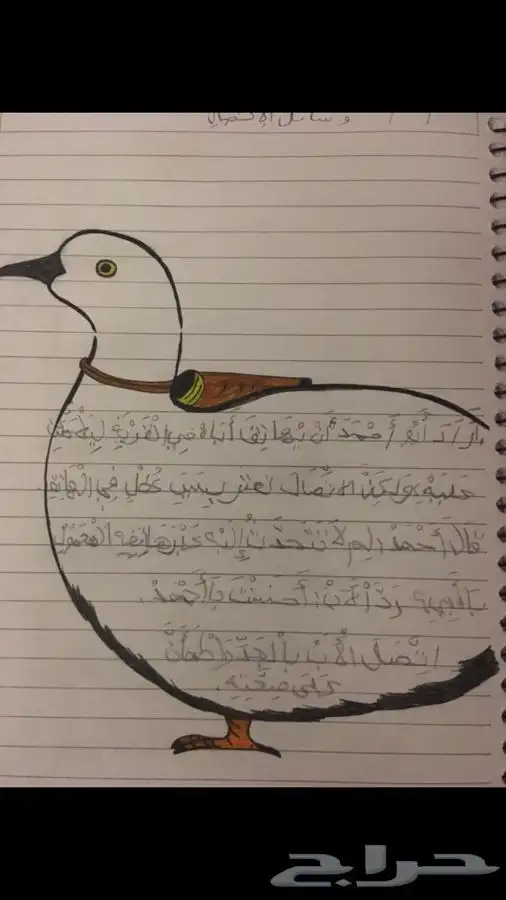 وسائل الاتصال
أَرَادَ أَبُو أَحْمَدَ أَنْ يُهَاتِفَ أَبَاهُ فِي الْقَرْيَةِ لِيَطْمَئِنَّ
عَلَيْهِ وَلَكِنَّ الاتِّصَالَ تعثر بِسَبَبِ عُطْلٍ فِي الْهَاتِفِ
فَقَالَ أَحْمَدُ: لِمَ لَا تَتَحَدَّثُ إِلَيْهِ عَبْرَ هَاتِفِهِ الْمَحْمُولِ
يَا أَبِي؟ رَدَّ الْأَبُ: أَحْسَنْتَ يَا أَحْمَدُ.
اِتَّصَلَ الْأَبُ بِالْجَدِّ وَاطْمَأَنَّ
عَلَى صِحَّتِهِ.
حراج